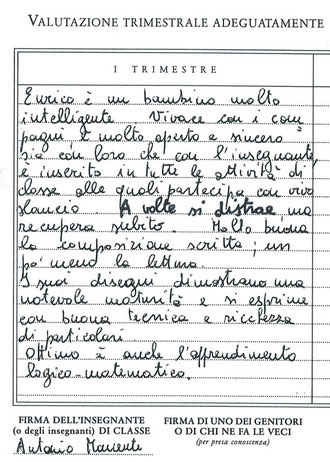 VALUTAZIONE TRIMESTRALE ADEGUATAMENTE
I TRIMESTRE
Enrico è un bambino molto
intelligente Vivace con i com
pagni, è molto aperto e sincero
sia con loro che con l'insegnante,
è inserito in tutte le attività di
classe alle quali partecipa con vivo
slancio. A volte si distrae, ma
recupera subito. Molto buona
la composizione scritta; un
po' meno la lettura.
I suoi disegni dimostrano una
notevole maturità e si esprime
con buona tecnica e ricchezza
di particolari.
Ottimo è anche l'apprendimento
logico-matematico.
FIRMA DELL'INSEGNANTE
(o degli insegnanti) DI CLASSE
FIRMA DI UNO DEI GENITORI
O DI CHI NE FA LE VECI
(per presa conoscenza)
Antonio